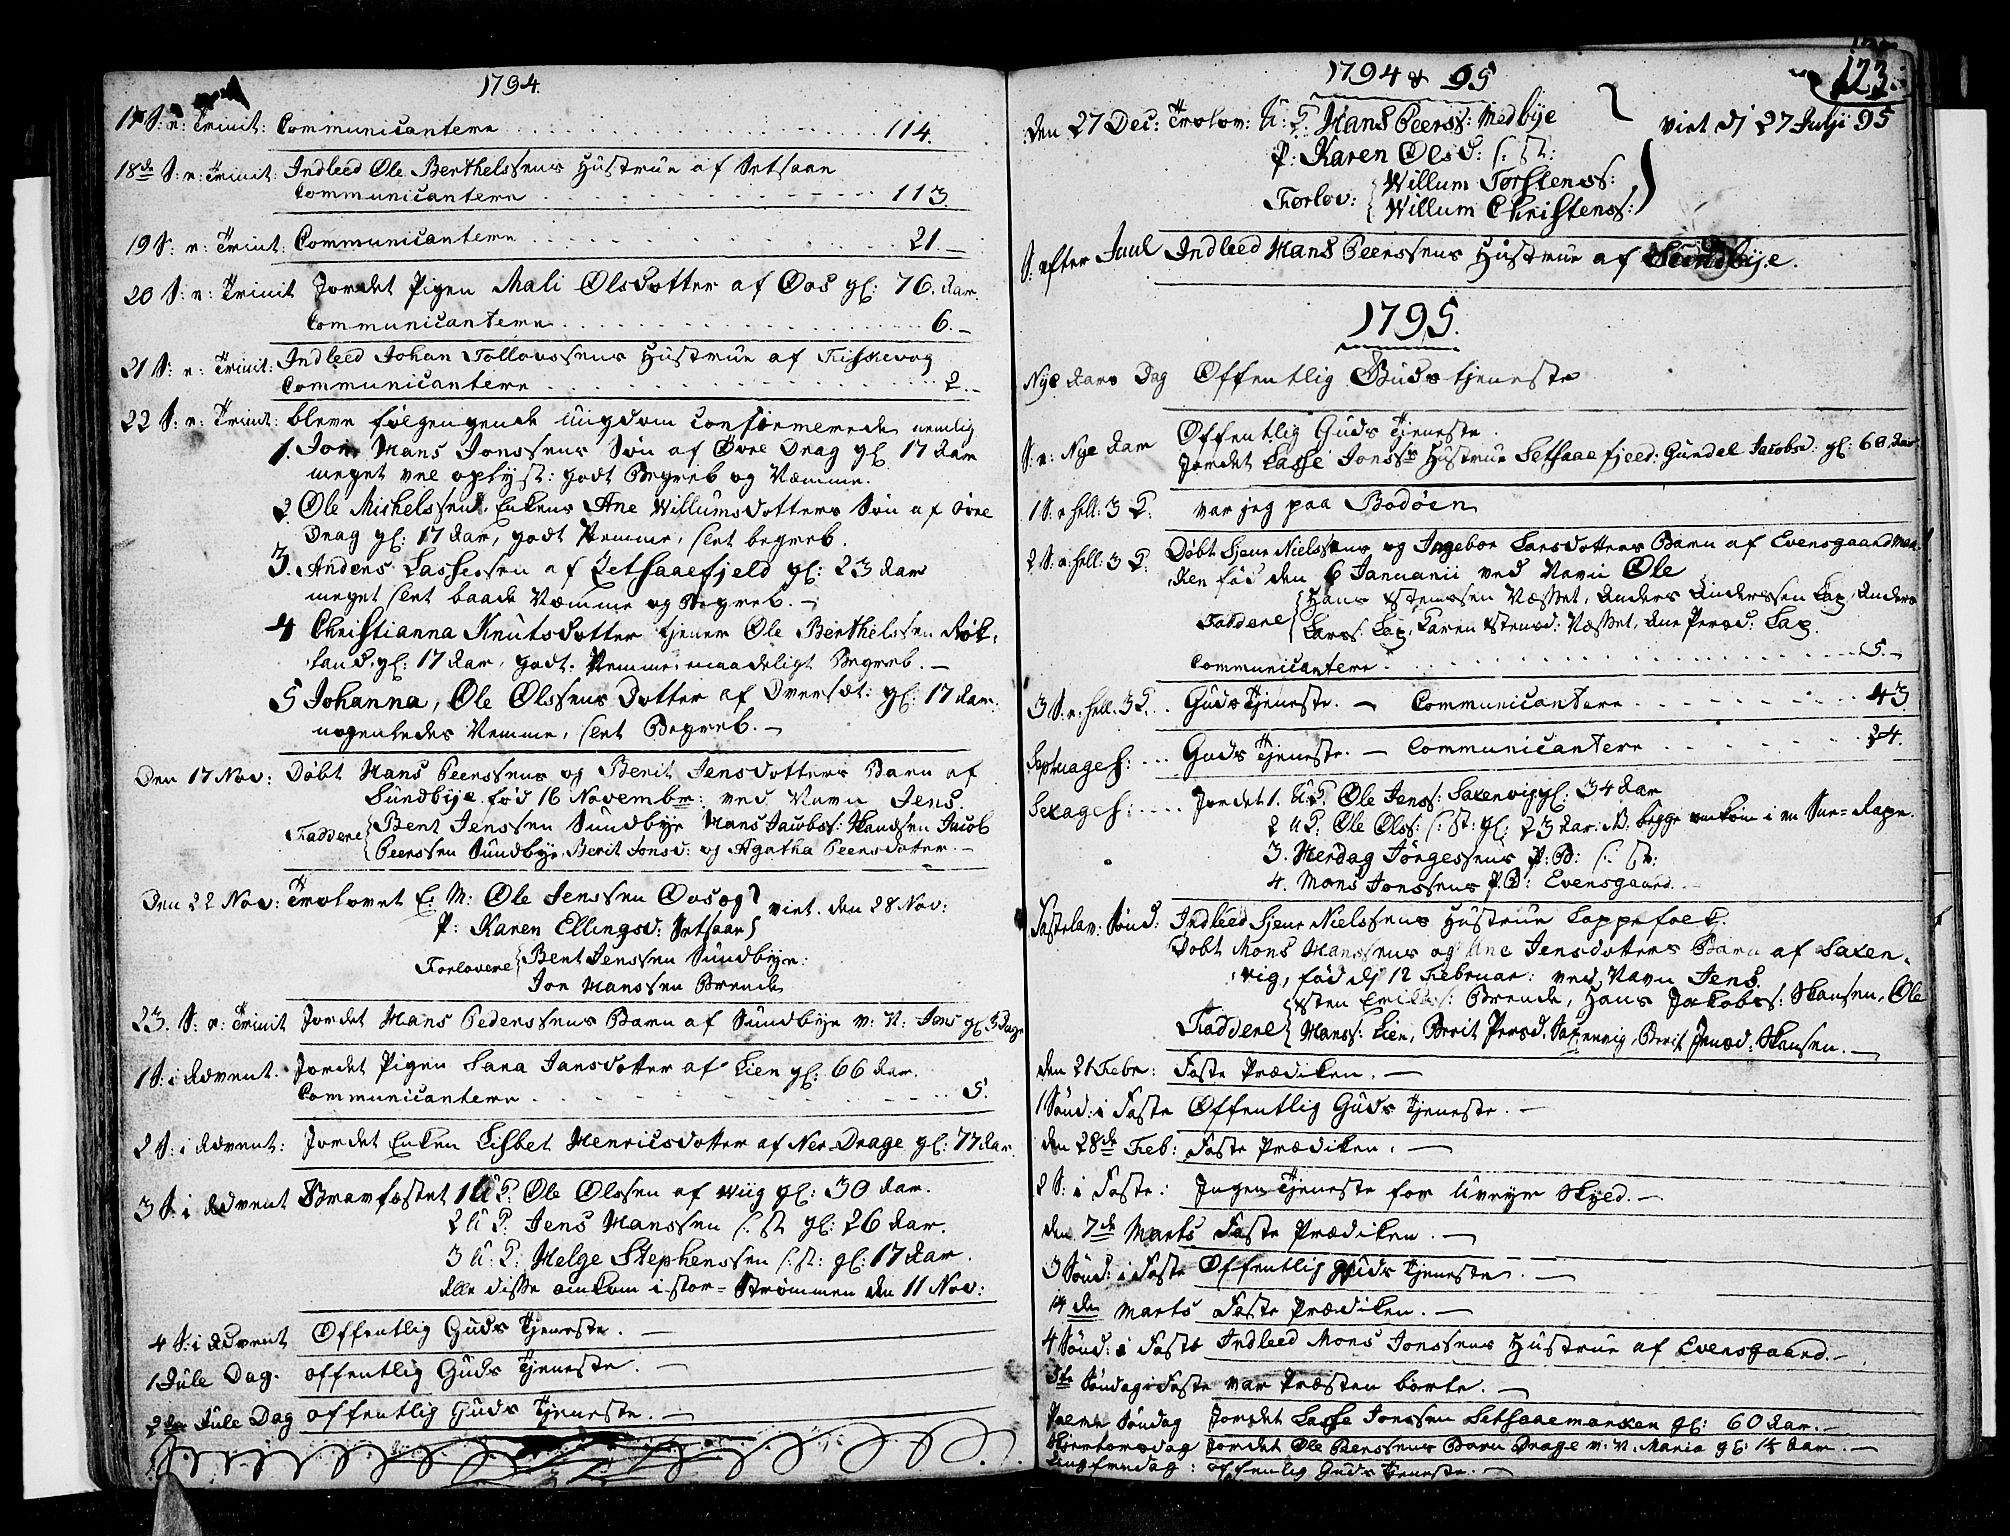 1794.
17 S: e: Trinit: Communicantere 114.
18de S: e: Trinit: Indleed Ole Berthelssens Hustrue af Setsaae
Communicantere 113.
19 S: e: Trinit: Communicantere 21.
20 S: e: Trinit Jordet Pigen Mali Olsdotter af Oos gl: 76. Aar.
Communicantere 6.
21 S: e: Trinit: Indleed Johan Tollovssens Hustrue af Fiskevog
Communicantere 2.
22 S: e: Trinit: bleve følgengende Ungdom Confirmerede nemlig
1. Jon Hans Jonssens Søn af Øvre Drag gl 17 Aar
meget vel oplyst: godt Begreb og Nemme.
2 Ole Michelssen, Enkens Ane Willumsdotters Søn af Øvre
Drag gl: 17 Aar, godt Nemme, slet begreb.
3. Anders Lassessen af Zetsaaefjeld gl: 23 Aar
meget slet baade Nemme og Begreb.
4 Christianna Knutsdotter tjener Ole Berthelssen Røk-
land, gl: 17 Aar, godt Nemme, maadeligt Begreb.
5 Johanna, Ole Olssens Dotter af Oversæt: gl: 17 Aar
nogenledes Nemme, slet Begreb.
Den 17 Nov: Døbt Hans Peerssens og Berit Jensdotters Barn af
Sundbye. fød 16 Novembr: ved Navn Jens.
Faddere Bent Jenssen Sundbye Hans Jacobs: Skandsen Jacob
Peerssen Sundbye, Berit Jonsd: og Agatha Peersdoter.
Den 22 Nov: Trolovet E: M: Ole Jenssen Oos og viet. den 28 Nov:
P: Karen Ellingsd: Setsaae
Forlovere Bent Jenssen Sundbye:
Jon Hanssen Brende
23. S: e: Trinit Jordet Hans Pederssens Barn af Sundbye v: N: Jens gl 3 Dage
1 S: i Advent. Jordet Pigen Sara Jansdotter af Lien gl: 66 Aar.
Communicantere 5.
2 S: i Advent: Jordet Enken Lisbet Henricsdotter af Ner-Drage gl: 77 Aar.
3 S: i Advent Gravfæstet 1 U: K: Ole Olssen af Wiig gl: 30 Aar.
2 U K. Jens Hanssen s: st gl: 26 Aar.
3 U: K: Helge Stephenssen s: st: gl: 17 Aar.
Alle disse omkom i stor-Strømmen den 11 Nov:
4 S: i Advent Offentlig Guds Tjeneste.
1 Jule Dag. offentlig Guds Tjeneste.
2den Jule Dag offentlig Guds Tjeneste.
1794 & 95
123.
Den 27 Dec: Trolov: U: K: Hans Peers: Medbye viet d 27 Julji 95
P: Karen Olsd: s: st:
Forlov: Willum Torstens:
Willum Christens:
S. efter Juul Indleed Hans Peerssens Hustrue af Sundbye.
1795.
Nye Aars Dag Offentlig Guds tjeneste
S: e: Nye Aar Offentlig Guds Tjeneste.
Jordet Lasse Jonss: Hustrue Setsaaefjeed: Gundel Jacobsd: gl: 60 Aar
1 S: e hell: 3 K: var jeg paa Bodøen
2 S: e: hell: 3 K: Døbt Sjur Nielssens og Ingebor Larsdotters Barn af Evensgaard Mar-
ken fød den 6 Januarii ved Navn Ole
Faddere Hans Stenssen Næsset, Anders Anderssen Lap, Anders
Larss: Lap, Karen Stensd: Næsset, Ane Persd: Lap.
Communicantere 5.
3 S: e. hell. 3 K. Guds Tjeneste. Communicantere 43
Septuages: Guds Tjeneste. Communicantere 24.
Sexages: Jordet 1. U K. Ole Jens: Saxenvig gl: 34 Aar
2 U K. Ole Ols: s: st: gl: 23 Aar. N. begge omkom i en
3. Herdag Jörgessens P: B: s: st:
4. Mons Jonssens P: B: Evensgaard.
Fastelav: Sønd: Indleed Sjur Nielssens Hustrue Lappefolk.
Døbt Mons Hanssens og Ane Jensdotters Barn af Saxen-
vig, fød d 12 Februar: ved Navn Jens.
Faddere Sten Eriks: Brende, Hans Jakobs: Skansen, Ole
Hanss: Lien, Berit Persd. Saxenvig, Berit Jensd: Skansen.
Den 21 Febr: Faste Prædiken.
1 Sønd: i Faste Offentlig Guds Tjeneste.
Den 28de Feb: Faste Prædiken.
2 S: i Faste: Ingen Tjeneste for Uveyr Skyld.
den 7de Marts Faste Prædiken.
3 Sønd: i Faste Offentlig Guds Tjeneste.
14 den Marts Faste Prædiken.
4 Sønd: i Faste Indleed Mons Jonssens Hustrue af Evensgaard.
5te Søndag i Faste var Præsten borte.
Palme Søndag Jordet Lasse Jonssen Setsaaemarken gl: 60 Aar.
Skiertorsdag Jordet Ole Peerssens Barn Drage v: N. Maria gl: 14 Aar.
Langfredag: offentlig Guds Tjeneste.